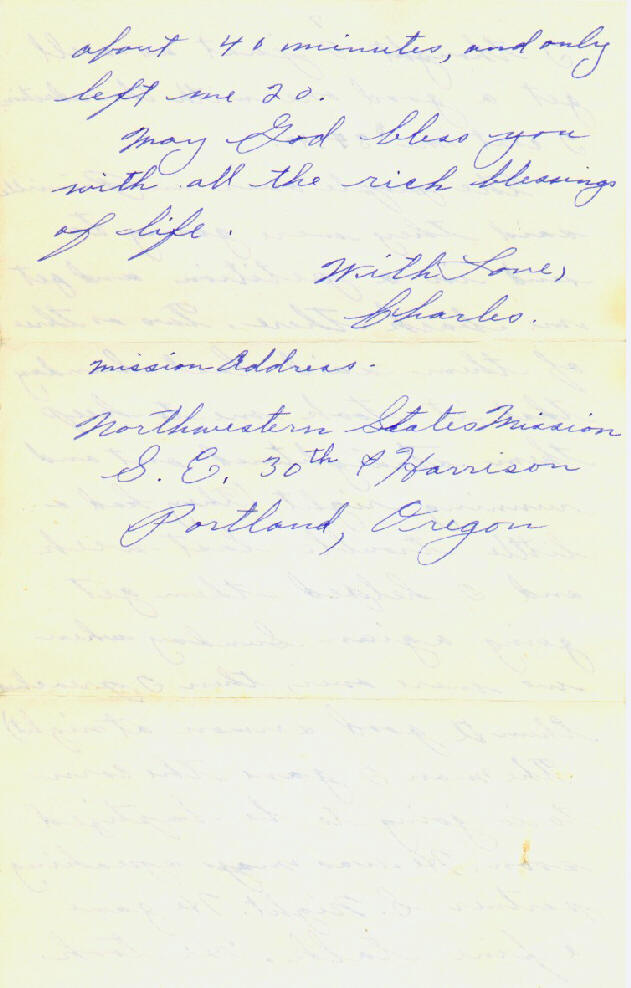 about 40 minutes, and only
left me 20.
May God bless you
with all the rich blessings
of life.
With Love,
Charles.
Mission Address.
Northwestern States Mission
S. E. 30th & Harrison
Portland, Oregon